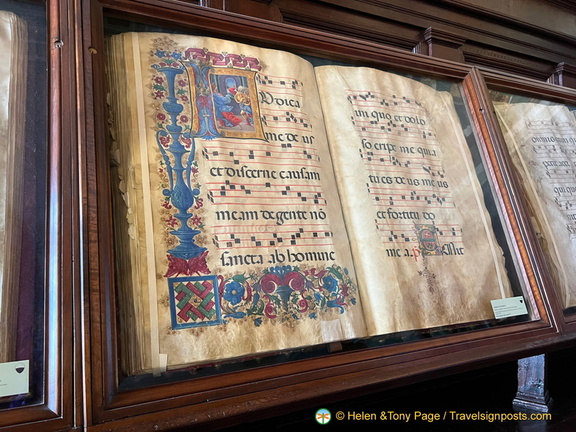 Iudica
me de us
et discerne causam
meam de gente nō
sancta ab homine
ini quo et dolo
so eripe me quia
tu es de us me us
et fortitu do
me a. Emit
© Helen &Tony Page / Travelsignposts.com